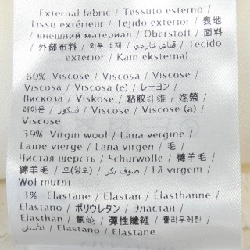 External fabric / Tessuto esterno /
Tissu extérieur / Tejido exterior / 表地
/ Внешний материал / Oberstoff / 面料
/ 外部布料 / قماش خارجي / Tecido
exterior / Kam eksternal
60% Viscose / Viscosa / Viscose
/ Viscosa / Viscosa (e) / レーヨン /
Вискоза / Viskose / 粘胶纤维 /
/ فسكوز / Viscose / Viscosa (a) /
Viscose
39% Virgin wool / Lana vergine /
Laine vierge / Lana virgen / 毛 /
Чистая шерсть / Schurwolle / 绵羊毛 /
綿羊毛 / Lã virgem /
Wol murni
1% Elastane / Elastan / Élasthanne /
Elastano / ポリウレタン / Эластан /
Elasthan / 氨纶 / 彈性纖維 / 폴리우레탄 /
Elastano / Elastane